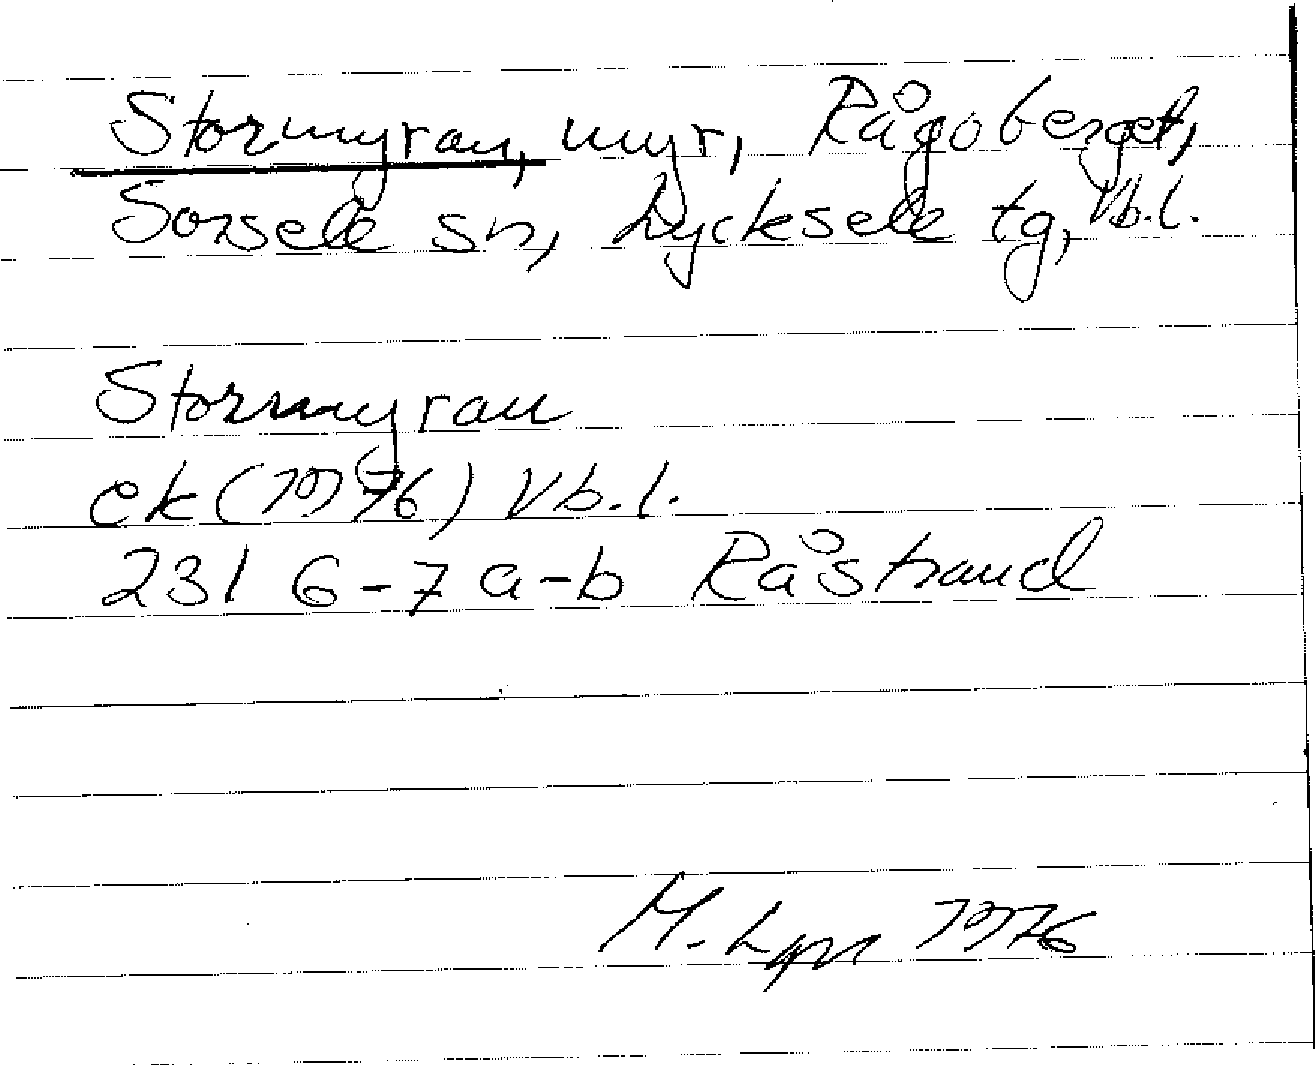 Stormyran, myr, Rågoberget,
Sorsele sn, Lycksele tg, Vb.l.
Stormyran
ek (1976) Vb.l.
23I 6-7 a-b Råstrand
M. 1976